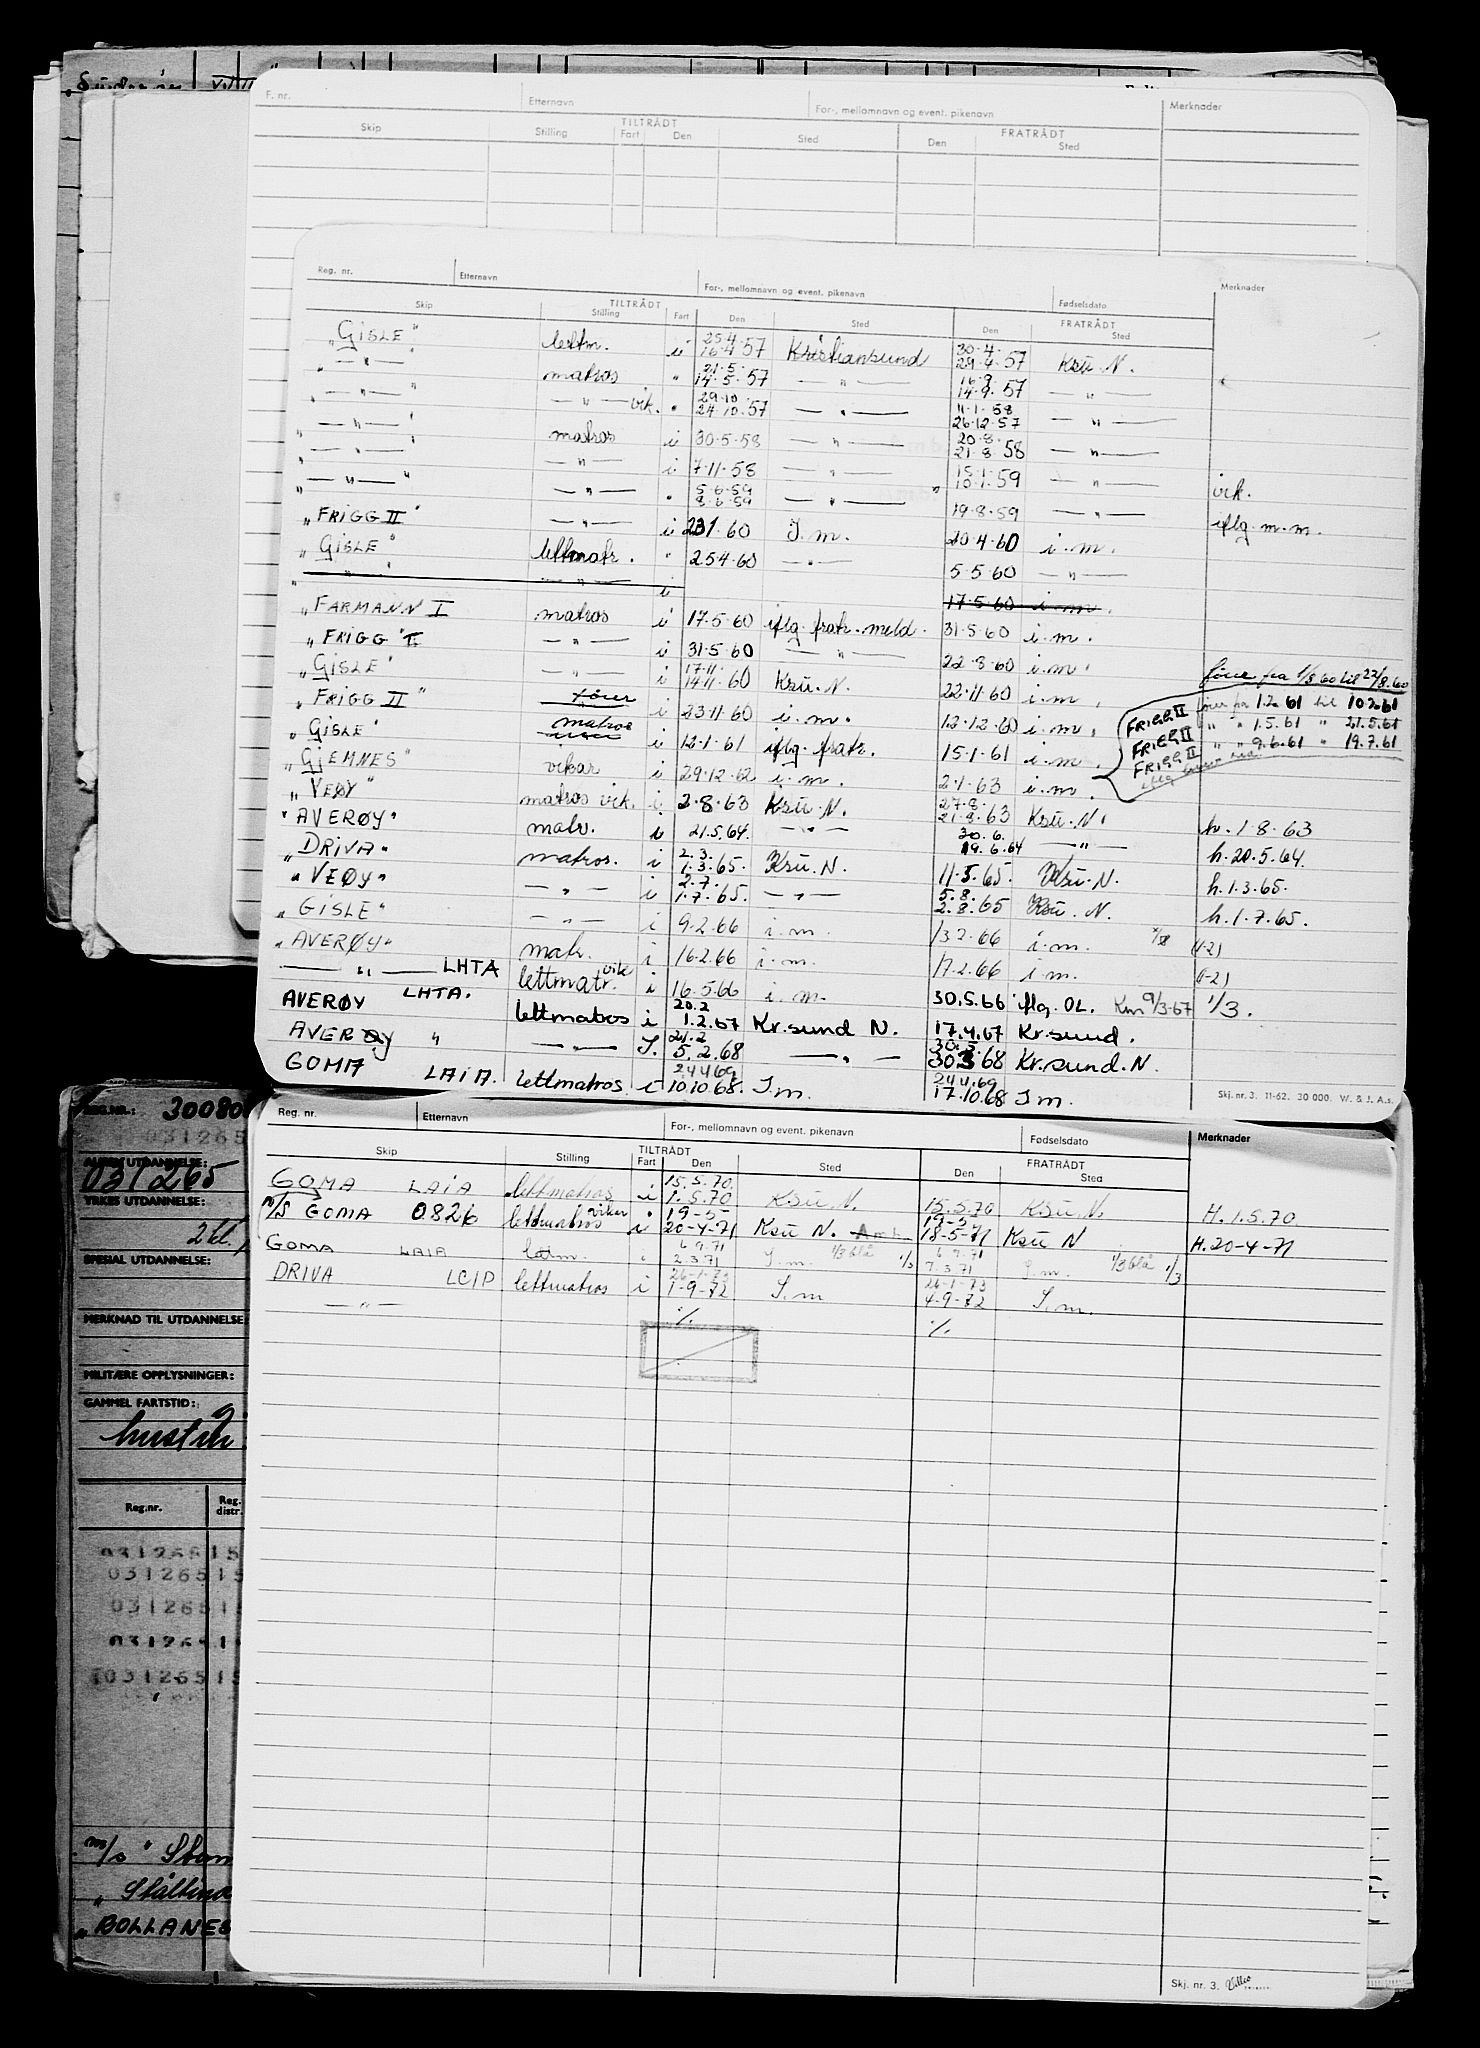 F. nr. Etternavn For-, mellomnavn og event. pikenavn Merknader
TILTRÅDT FRATRÅDT
Skip Stilling Fart Den Sted Den Sted
Reg. nr. Etternavn For-, mellomnavn og event. pikenavn Fødselsdato Merknader
TILTRÅDT FRATRÅDT
Skip Stilling Fart Den Sted Den Sted
"GISLE" lettm. i 25.4. 16.4.57 Kristiansund 30.4. 29.4.57 Ksu.N.
— " — matros " 21.5. 14.5.57 — " — 16.9. 14.9.57 — " —
— " — — " — vik. " 29.10. 24.10.57 — " — 11.1.58 26.12.57 — " —
— " — matros i 30.5.58 — " — 20.8. 21.8.58 — " —
— " — — " — i 7.11.58 — " — 15.1. 10.1.59 — " — vik.
— " — — " — " 5.6.59 8.6.59 — " — 19.8.59 — " — iflg. m.m.
"FRIGG II" — " — i 231.60 I.m. 20.4.60 i.m.
"GISLE" lettmatr. " 25.4.60 — " — 5.5.60 — " —
— " — — " — i 17.5.60 i.m.
"FARMANN I matros i 17.5.60 iflg. fratr. meld. 31.5.60 i.m.
"FRIGG II — " — i 31.5.60 — " — 22.8.60 i.m. fører fra 1/8 60 til 22/8.60
"GISLE" — " — i 17.11. 14.11.60 Ksu.N. 22.11.60 i.m.
"FRIGG II" fører matros i 23.11.60 i.m. 12.12.60 i.m. FRIGG II fører fra 1.2.61 til 10.2.61
"GISLE" i 12.1.61 iflg. fratr. 15.1.61 i.m. FRIGG II " " 1.5.61 " 21.5.61
"GJEMNES" vikar i 29.12.62 i.m. 2.1.63 i.m. FRIGG II " " 9.6.61 " 19.7.61
"VEØY" matros vik. i 2.8.63 Ksu.N. 27.8. 21.8.63 Ksu.N. h. 1.8.63
"AVERØY" matr. i 21.5.64. — " — 30.6. 19.6.64 — " — h. 20.5.64.
"DRIVA" matros. i 2.3. 1.3.65. Ksu.N. 11.5.65. Ksu.N. h. 1.3.65.
"VEØY" — " — i 2.7. 1.7.65. — " — 5.8. 2.8.65 Ksu.N. h. 1.7.65.
"GISLE" — " — i 9.2.66 i.m. 13.2.66 i.m.
"AVERØY" matr. i 16.2.66 i.m. 17.2.66 i.m.
— " — LHTA lettmatr. vik i 16.5.66 i.m. 30.5.66 iflg. OL. 9/3-67 1/3.
AVERØY LHTA. lettmatros i 20.2 1.2.67 Kr.sund N. 17.4.67 Kr.sund.
AVERØY " — " — I. 21.2 5.2.68 — " — 30.3.68 Kr.sund.N.
GOMA LAIA. lettmatros i 24469 10.10.68. Im. 244.69 17.10.68 Im.
Skj. nr. 3. 11-62. 30 000. W. & J. A.s.
REG.NR.: 300808
031265
031265
YRKES UTDANNELSE:
SPESIAL UTDANNELSE:
MERKNAD TIL UTDANNELSE:
MILITÆRE OPPLYSNINGER:
GAMMEL FARTSTID:
Reg.nr. Reg. distr.
031265 15
031265 15
031265 1
031265 1
031265 15
m/s "
"BOLLANES
Reg. nr. Etternavn For-, mellomnavn og event. pikenavn Fødselsdato Merknader
TILTRÅDT FRATRÅDT
Skip Stilling Fart Den Sted Den Sted
GOMA LAIA lettmatros i 15.5.70. 1.5.70 Ksu.N. 15.5.70 Ksu.N. H. 1.5.70
m/s GOMA 0826 lettmatros vikar i 19-5- 20-4-71 Ksu N. 19-5- 18-5-71 Ksu N H. 20-4-71
GOMA LAIA i 6.9.71 2.3.71 I.m. 1/3 blå 1/3 6.9.71 7.3.71 I.m. 1/3 blå 1/3
DRIVA LCIP lettmatros i 26-1-73 1-9-72 I.m 26-1-73 4-9-72 I.m.
— " — ./. ./.
Skj. nr. 3.